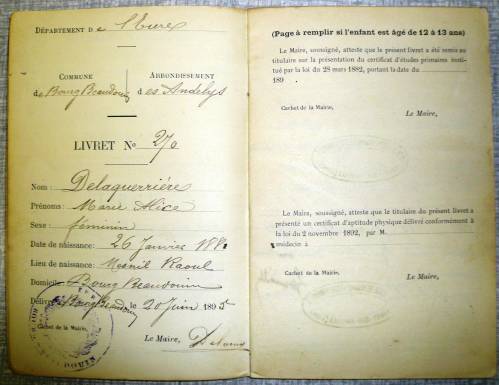 DÉPARTEMENT De l'Eure
COMMUNE
de Bourg Beaudouin
ARRONDISSEMENT
des Andelys
LIVRET No 270
Nom: Delaquerrière
Prénoms: Marie Alice
Sexe: féminin
Date de naissance: 26 Janvier 188
Lieu de naissance: Mesnil Raoul
Domicile: Bourg Beaudouin
Délivré Bourg Beaudouin le 20 Juin 1895
Cachet de la Mairie.
Le Maire,
(Page à remplir si l'enfant est âgé de 12 à 13 ans)
Le Maire, soussigné, atteste que le présent livret a été remis au
titulaire sur la présentation du certificat d'études primaires insti-
tué par la loi du 28 mars 1882, portant la date du
189
Cachet de la Mairie,
Le Maire,
Le Maire, soussigné, atteste que le titulaire du présent livret a
présenté un certificat d'aptitude physique délivré conformément à
la loi du 2 novembre 1892, par M.
médecin à
Cachet de la Mairie,
Le Maire,